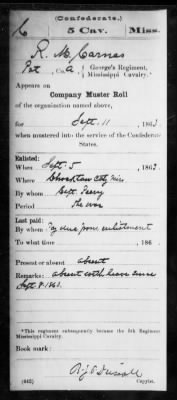 (Confederate.)
6 5 Cav. Miss.
R. M. Carnes
Pvt, Co. A, George's Regiment,
Mississippi Cavalry.*
Appears on
Company Muster Roll
of the organization named above,
for Sept. 11, 1863
when mustered into the service of the Confederate
States.
Enlisted:
When Sept. 5, 1863.
Where Choctaw Cty Miss
By whom Capt.
Period The war
Last paid:
By whom Pay due from enlistment
To what time , 186 .
Present or absent absent
Remarks: absent with leave since
Sept. 9. 1863.
*This regiment subsequently became the 5th Regiment
Mississippi Cavalry.
Book mark:
(642) Copyist.